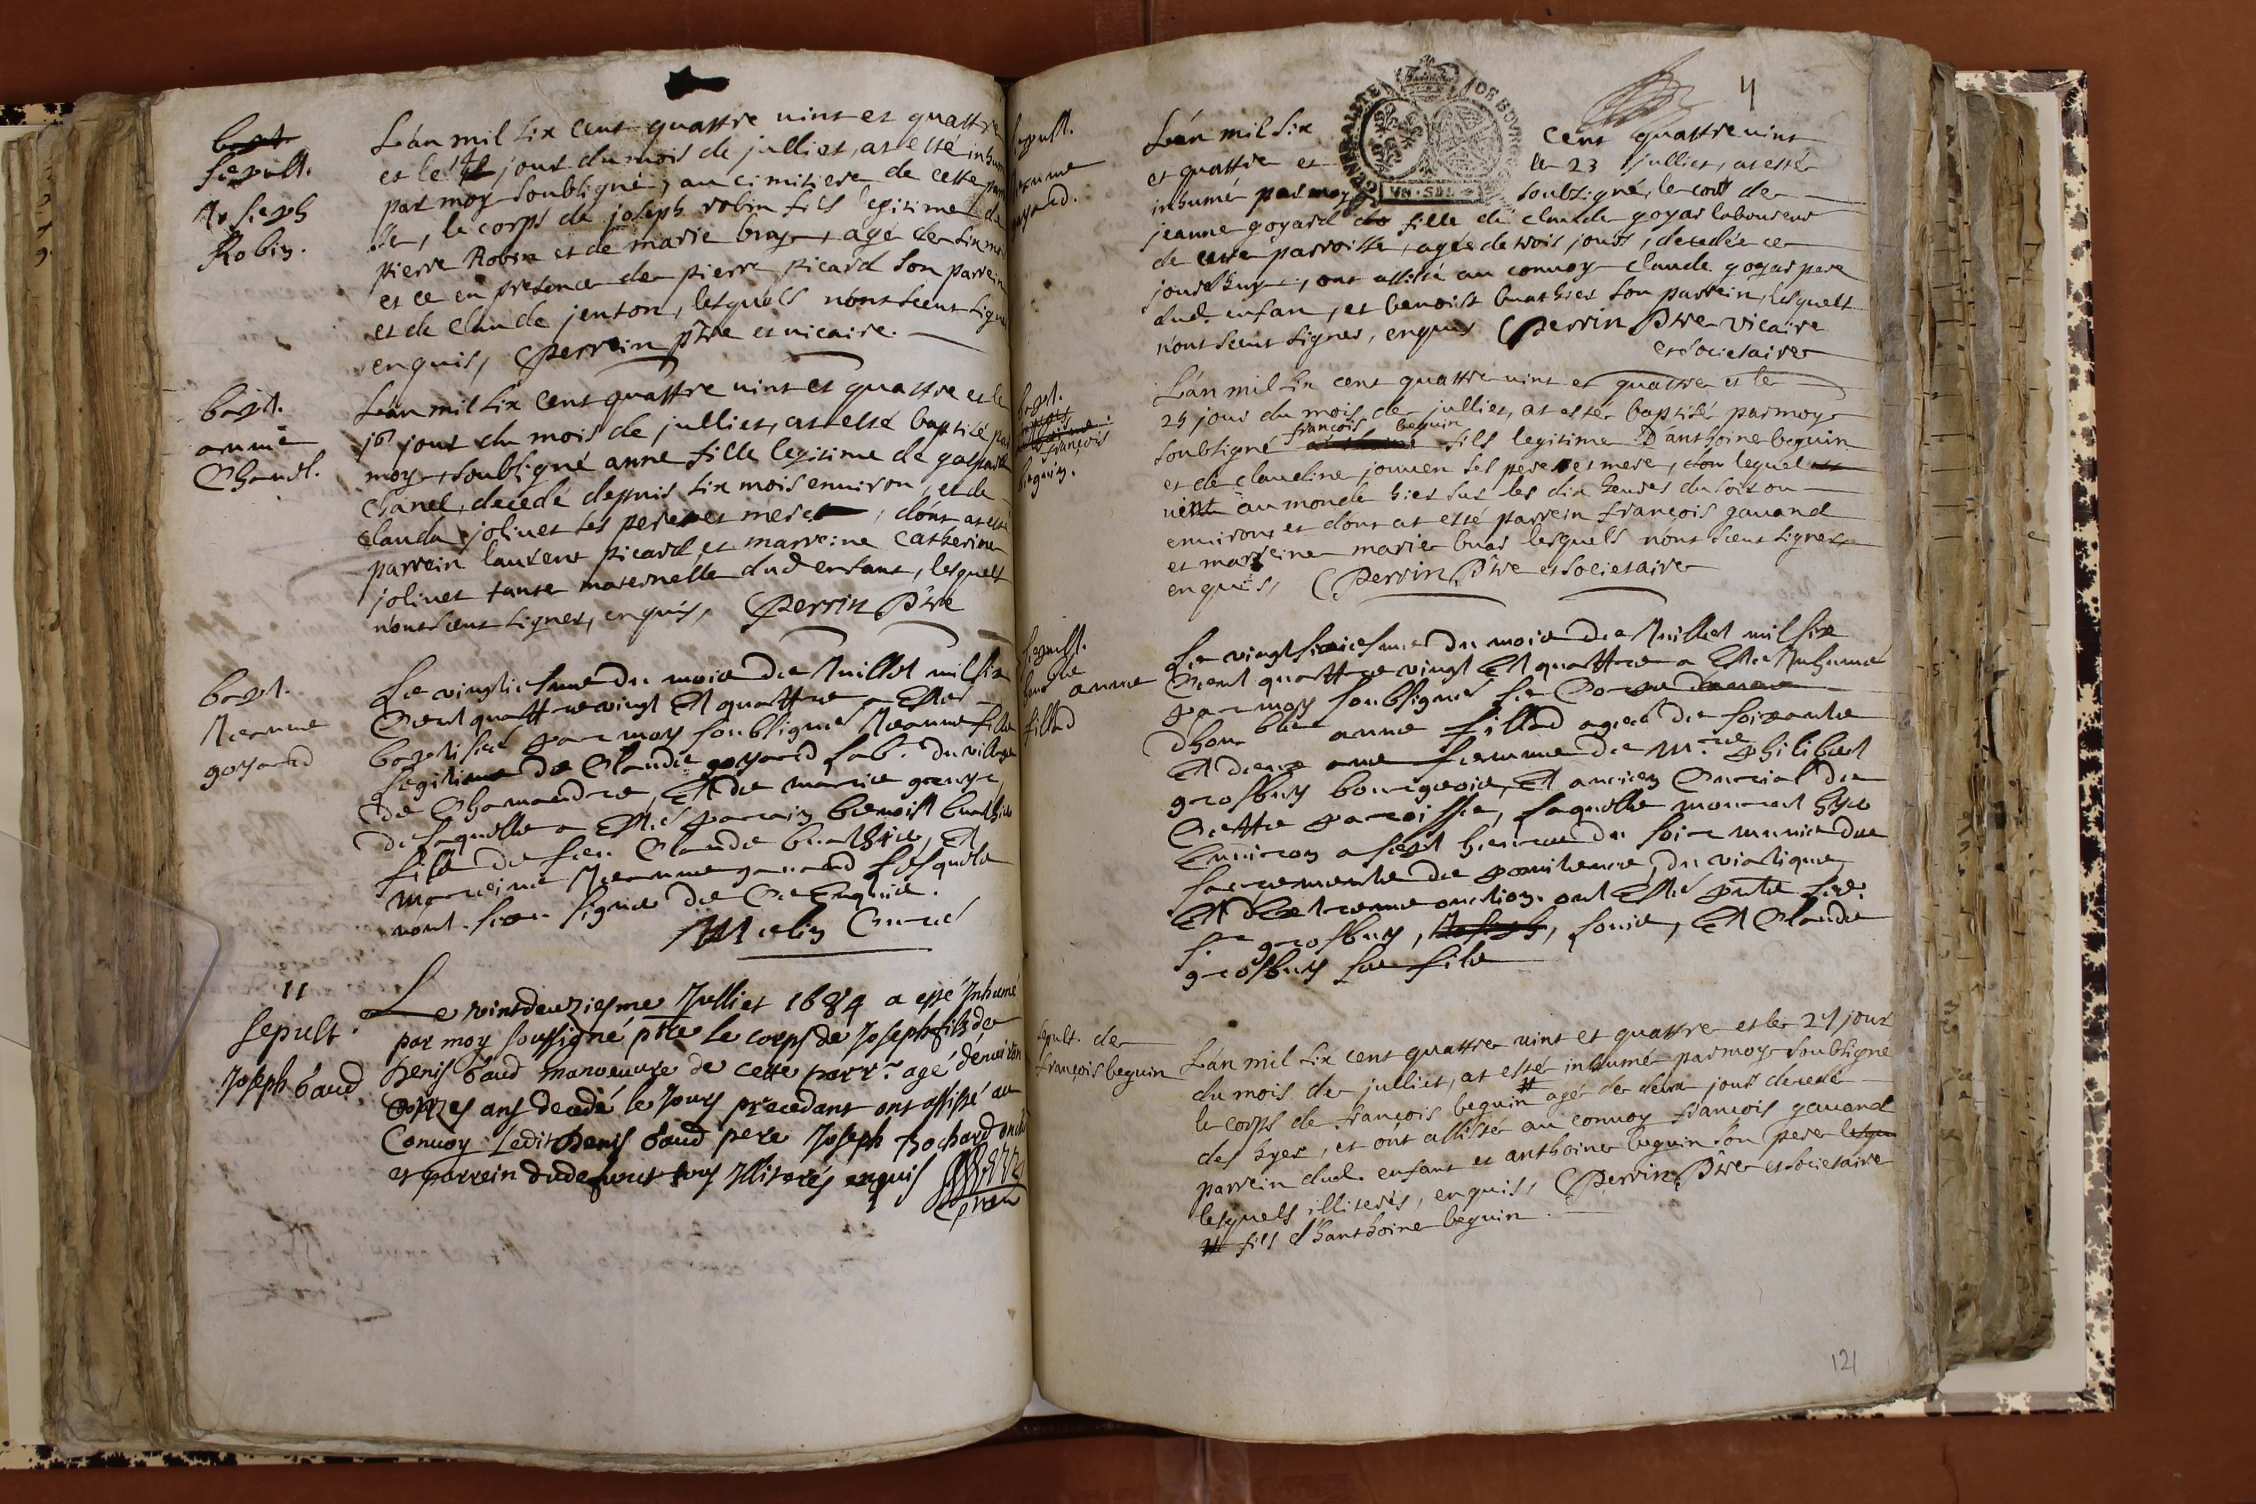 bapt
sepult.
Joseph
Robin.
L'an mil six cent quattre vint et quattre
et le jour du mois de julliet, at esté inhumé
par moy soubsigné, au cimitiere de cette
le corps de joseph robin fils legitime de
pierre Robin et de marie bray, agé de six mois
et ce en presence de pierre picard son parrein
et de Claude jenton, lesquels n'ont sceut signer
enquis, Perrin ptre et vicaire.
bapt.
anne
Chanel.
L'an mil six cent quattre vint et quattre et le
16 jour du mois de julliet, at esté baptisé par
moy soubsigné anne fille legitime de gaspard
Chanel, decedé depuis six mois environ, et de
Clauda jolivet ses pere et mere, dont at esté
parrein laurent picard et marreine Catherine
jolivet tante maternelle dud enfant, lesquels
n'ont sceut signer, enquis, Perrin Ptre
bapt.
Jeanne
goyard
Le vingtiesme du mois de Juillet mil six
Cent quattrevingt Et quattre a Esté
baptisée par moy soubsigné Jeanne fille
Legitime de Claude goyard lab. du village
de Chamandre, Et de marie
de laquelle a Esté parrain benoist buathier
fils de feu Claude buathier, Et
marreine Jeanne goyard Lesquels
n'ont sceu signer de Ce Enquis.
Melin Curé
11
sepult.
Joseph baud
Le vintdeuziesme Julliet 1684 a esté Inhumé
par moy soussigné ptre le corps de Joseph fils de
Denis baud manoeuvre de cette parr. agé d'environ
onzes ans decedé le Jours precedant ont assisté au
Convoy Ledit Denis baud pere Joseph Bochard oncle
et parrein dudefunct tous Illiterés enquis
4
GENERALITE DE BOURGOGNE
UN SOL
sepult.
jeanne
goyard.
L'an mil six cent quattre vint
et quattre et le 23 julliet, at esté
inhumé par moy soubsigné, le corps de
jeanne goyard fille de claude goyar laboureur
de cette parroisse, agée de trois jours, decedée ce
jourdhuy, ont assisté au convoy Claude goyar pere
dud. enfan, et benoist buathier son parrein, lesquels
n'ont sceut signer, enquis Perrin Ptre vicaire
et societaire
bapt.
françois
beguin.
L'an mil six cent quattre vint et quattre et le
25 jour du mois de julliet, at esté baptisé par moy
françois beguin
soubsigné fils legitime D'anthoine beguin
et de claudine jouven ses pere et mere, lequel
vint au monde hier sur les dix heures du soir ou
environ et dont at esté parrein françois gavand
et marreine marie buar lesquels n'ont sceut signer
enquis, Perrin Ptre et societaire
sepult.
de
anne
fillod
Le vingt sixiesme du mois de Juillet mil six
Cent quattre vingt Et quattre a Esté Inhumé
par moy soubsigné Le Corps
d'hon. ble anne fillod agée de soixante
Et deux ans femme de M.re philibert
grosbuy bourgeois, Et ancien Curial de
Cette parroisse, laquelle mourut hyer
Environ a sept heures du soir munie des
sacrements de penitence, du viatique
Et d'Extreme onction. ont Esté pnts led.
s.r grosbuy, Joseph, Louis, Et Claude
grosbuy ses fils
sepult. de
françois beguin
L'an mil six cent quattre vint et quattre et le 27 jour
du mois de julliet, at esté inhumé par moy soubsigné
le corps de françois beguin # agé de deux jours decedé
des hyer, et ont assisté au convoy françois gavand
parrein dud. enfant et anthoine beguin son pere
lesquels illiterés, enquis, Perrin Ptre et societaire
# fils d'hanthoine beguin.
121